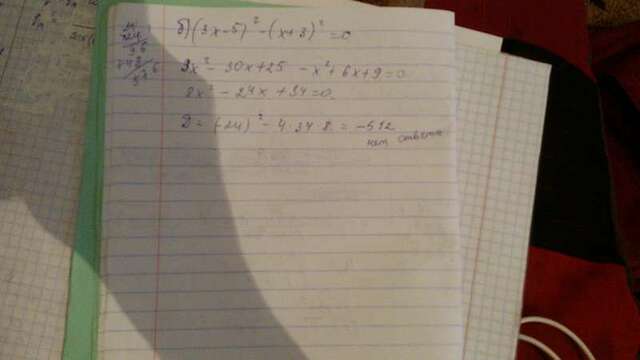 б) (3x-5)² - (x+3)² = 0
9x² - 30x + 25 - x² + 6x + 9 = 0
8x² - 24x + 34 = 0
D = (-24)² - 4·34·8 = -512
нет ответа